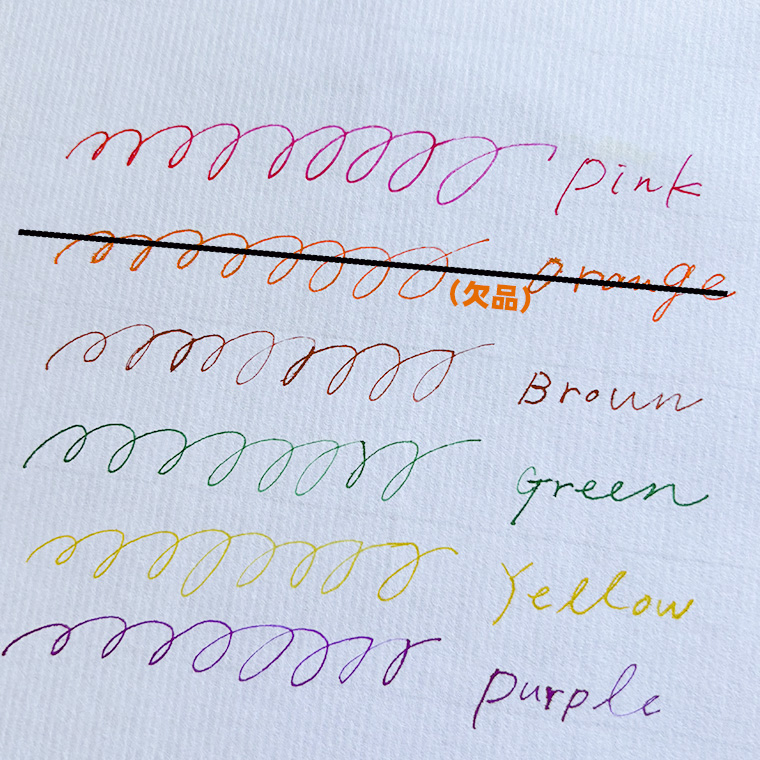 Pink
Orange
(欠品)
Broun
Green
Yellow
purple